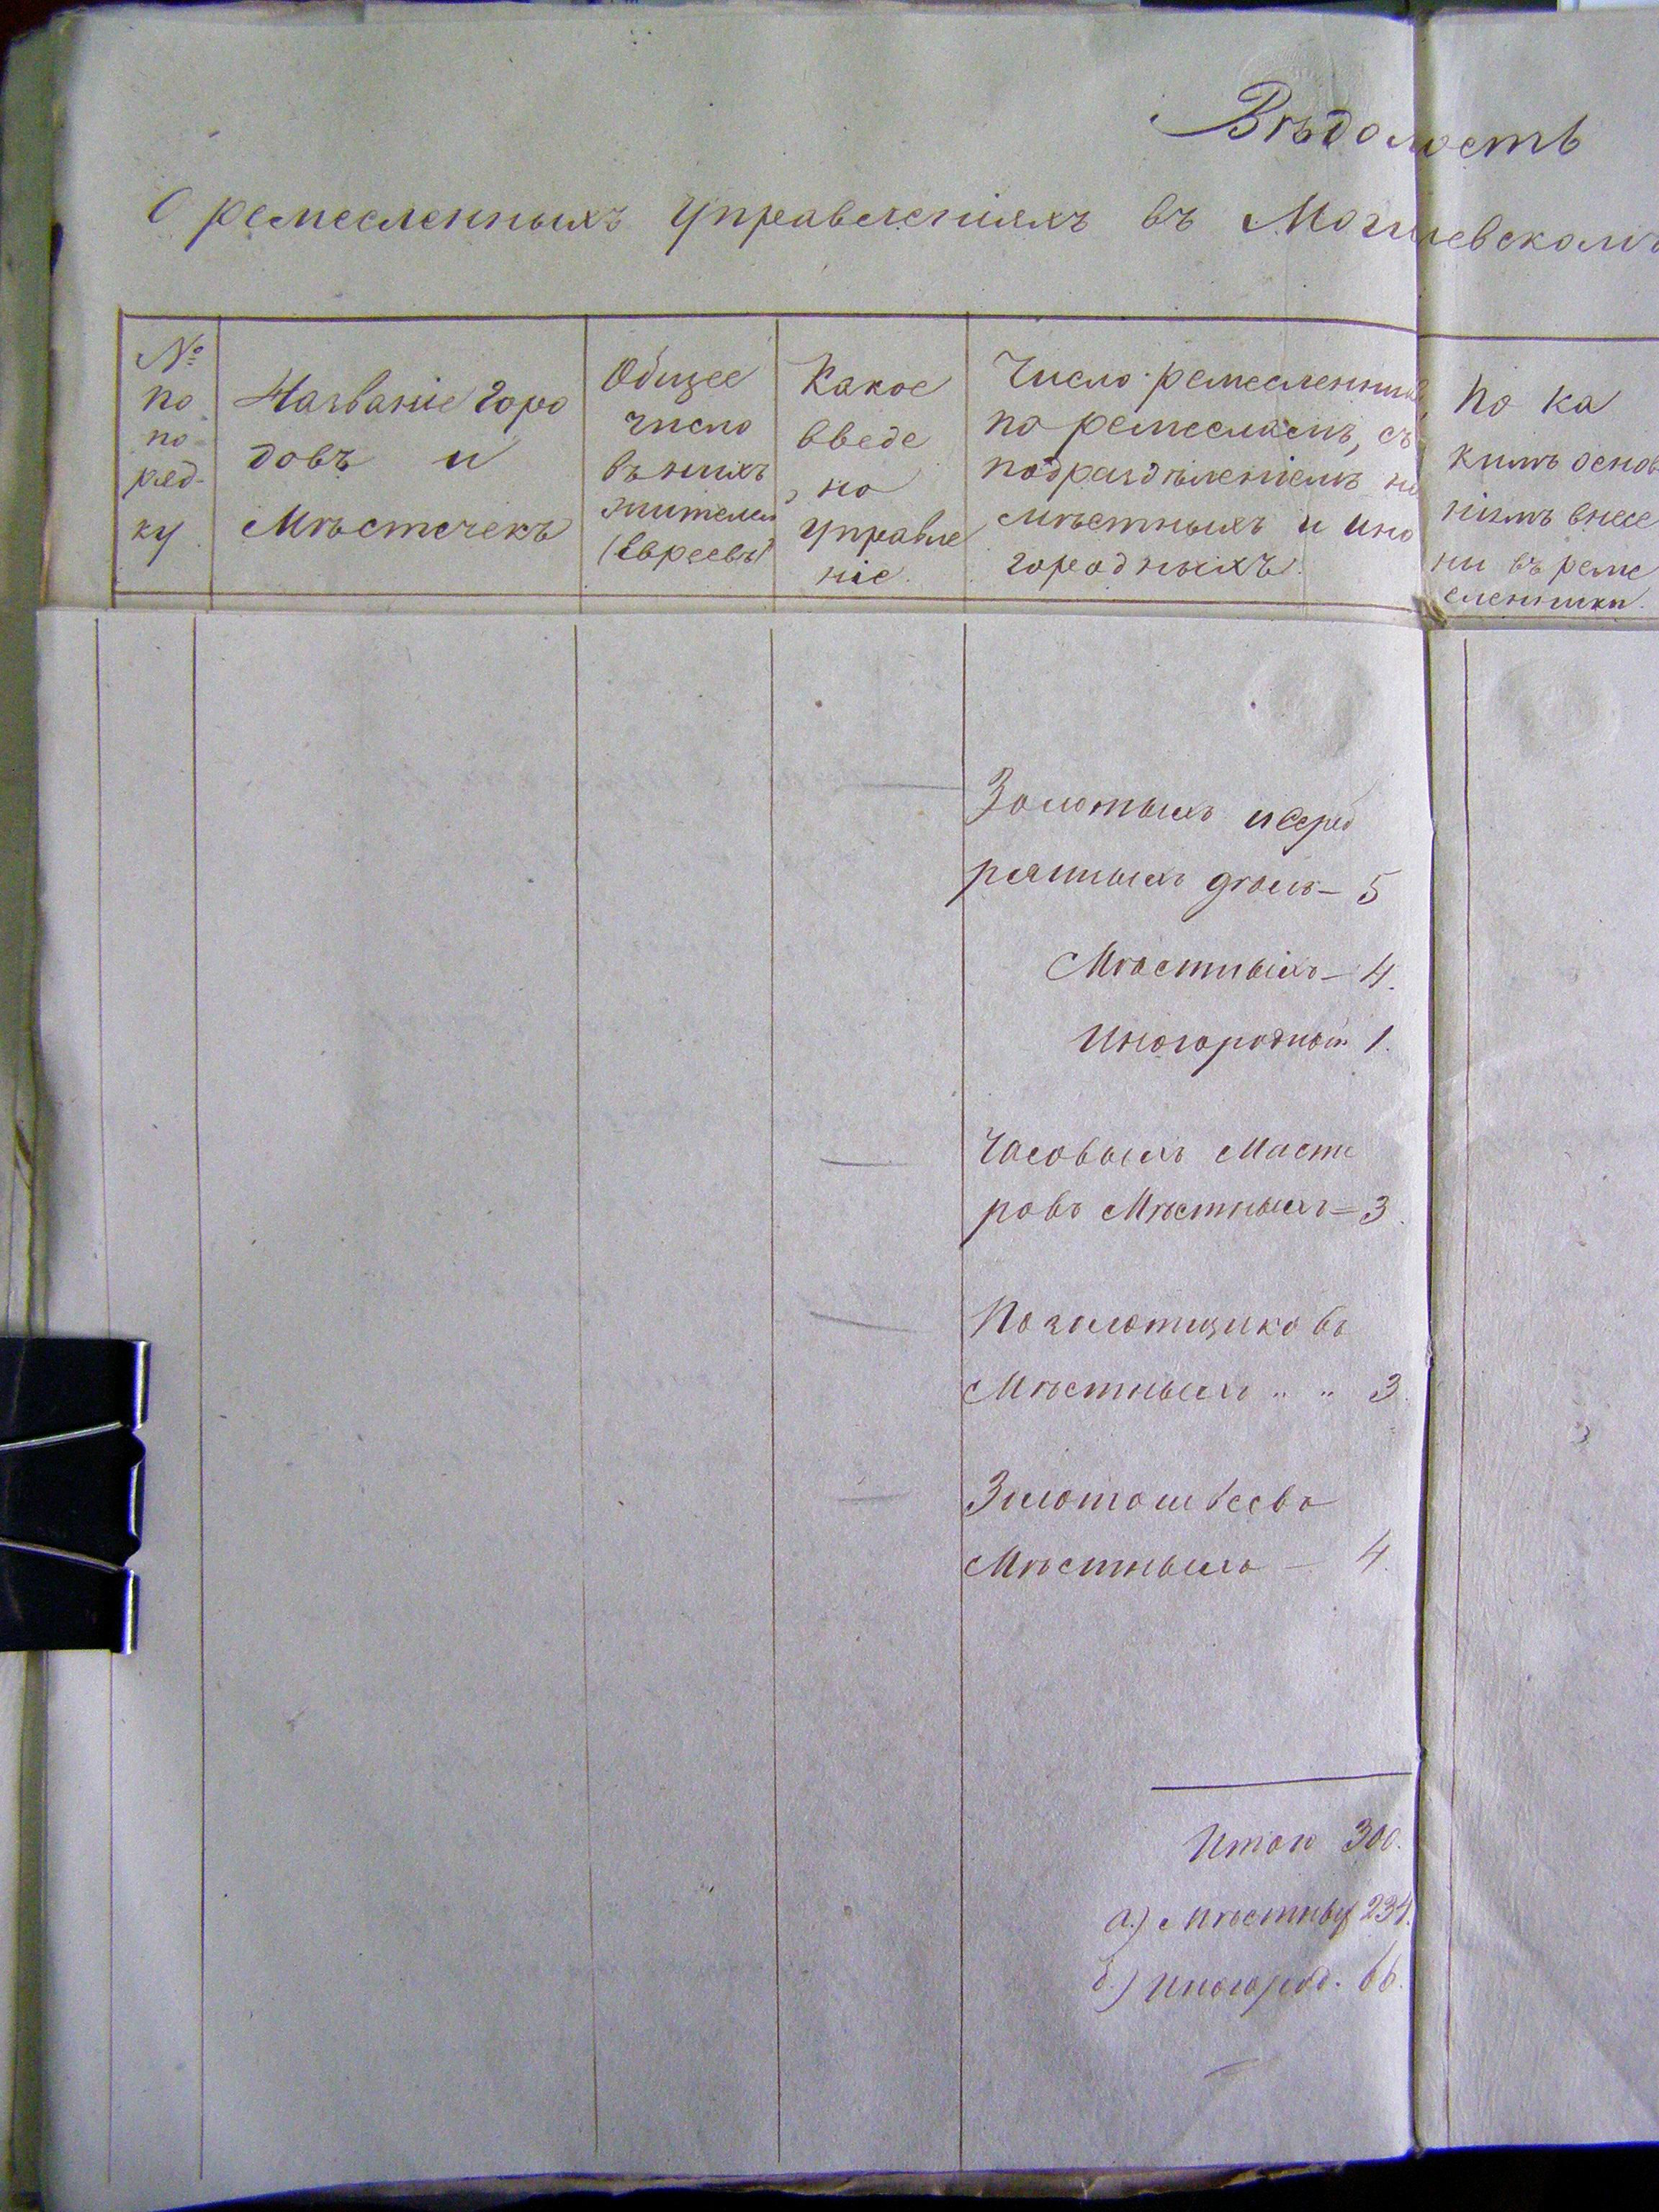 Вѣдомость
О ремесленныхъ Управленіяхъ въ Могилевскомъ
№
по
по-
ряд-
ку
Названіе Горо
довъ и
Мѣстечекъ
Общее
число
въ нихъ
жителей
(Евреевъ)
Какое
введе
но
Управле
ніе.
Число ремесленник
по ремесламъ, съ
подраздѣленіемъ на
мѣстныхъ и ино
городныхъ.
По ка
кимъ основ
ніямъ внесе
ны въ реме
сленники.
Золотыхъ и Сереб
рянныхъ дѣлъ – 5
Мѣстныхъ – 4.
Иногородный 1.
Часовыхъ Масте
ровъ Мѣстныхъ = 3.
Позолотщиковъ
Мѣстныхъ " " 3.
Золотошвеевъ
Мѣстныхъ – 4.
Итого 300.
а.) Мѣстных 234.
б.) Иногород. 66.